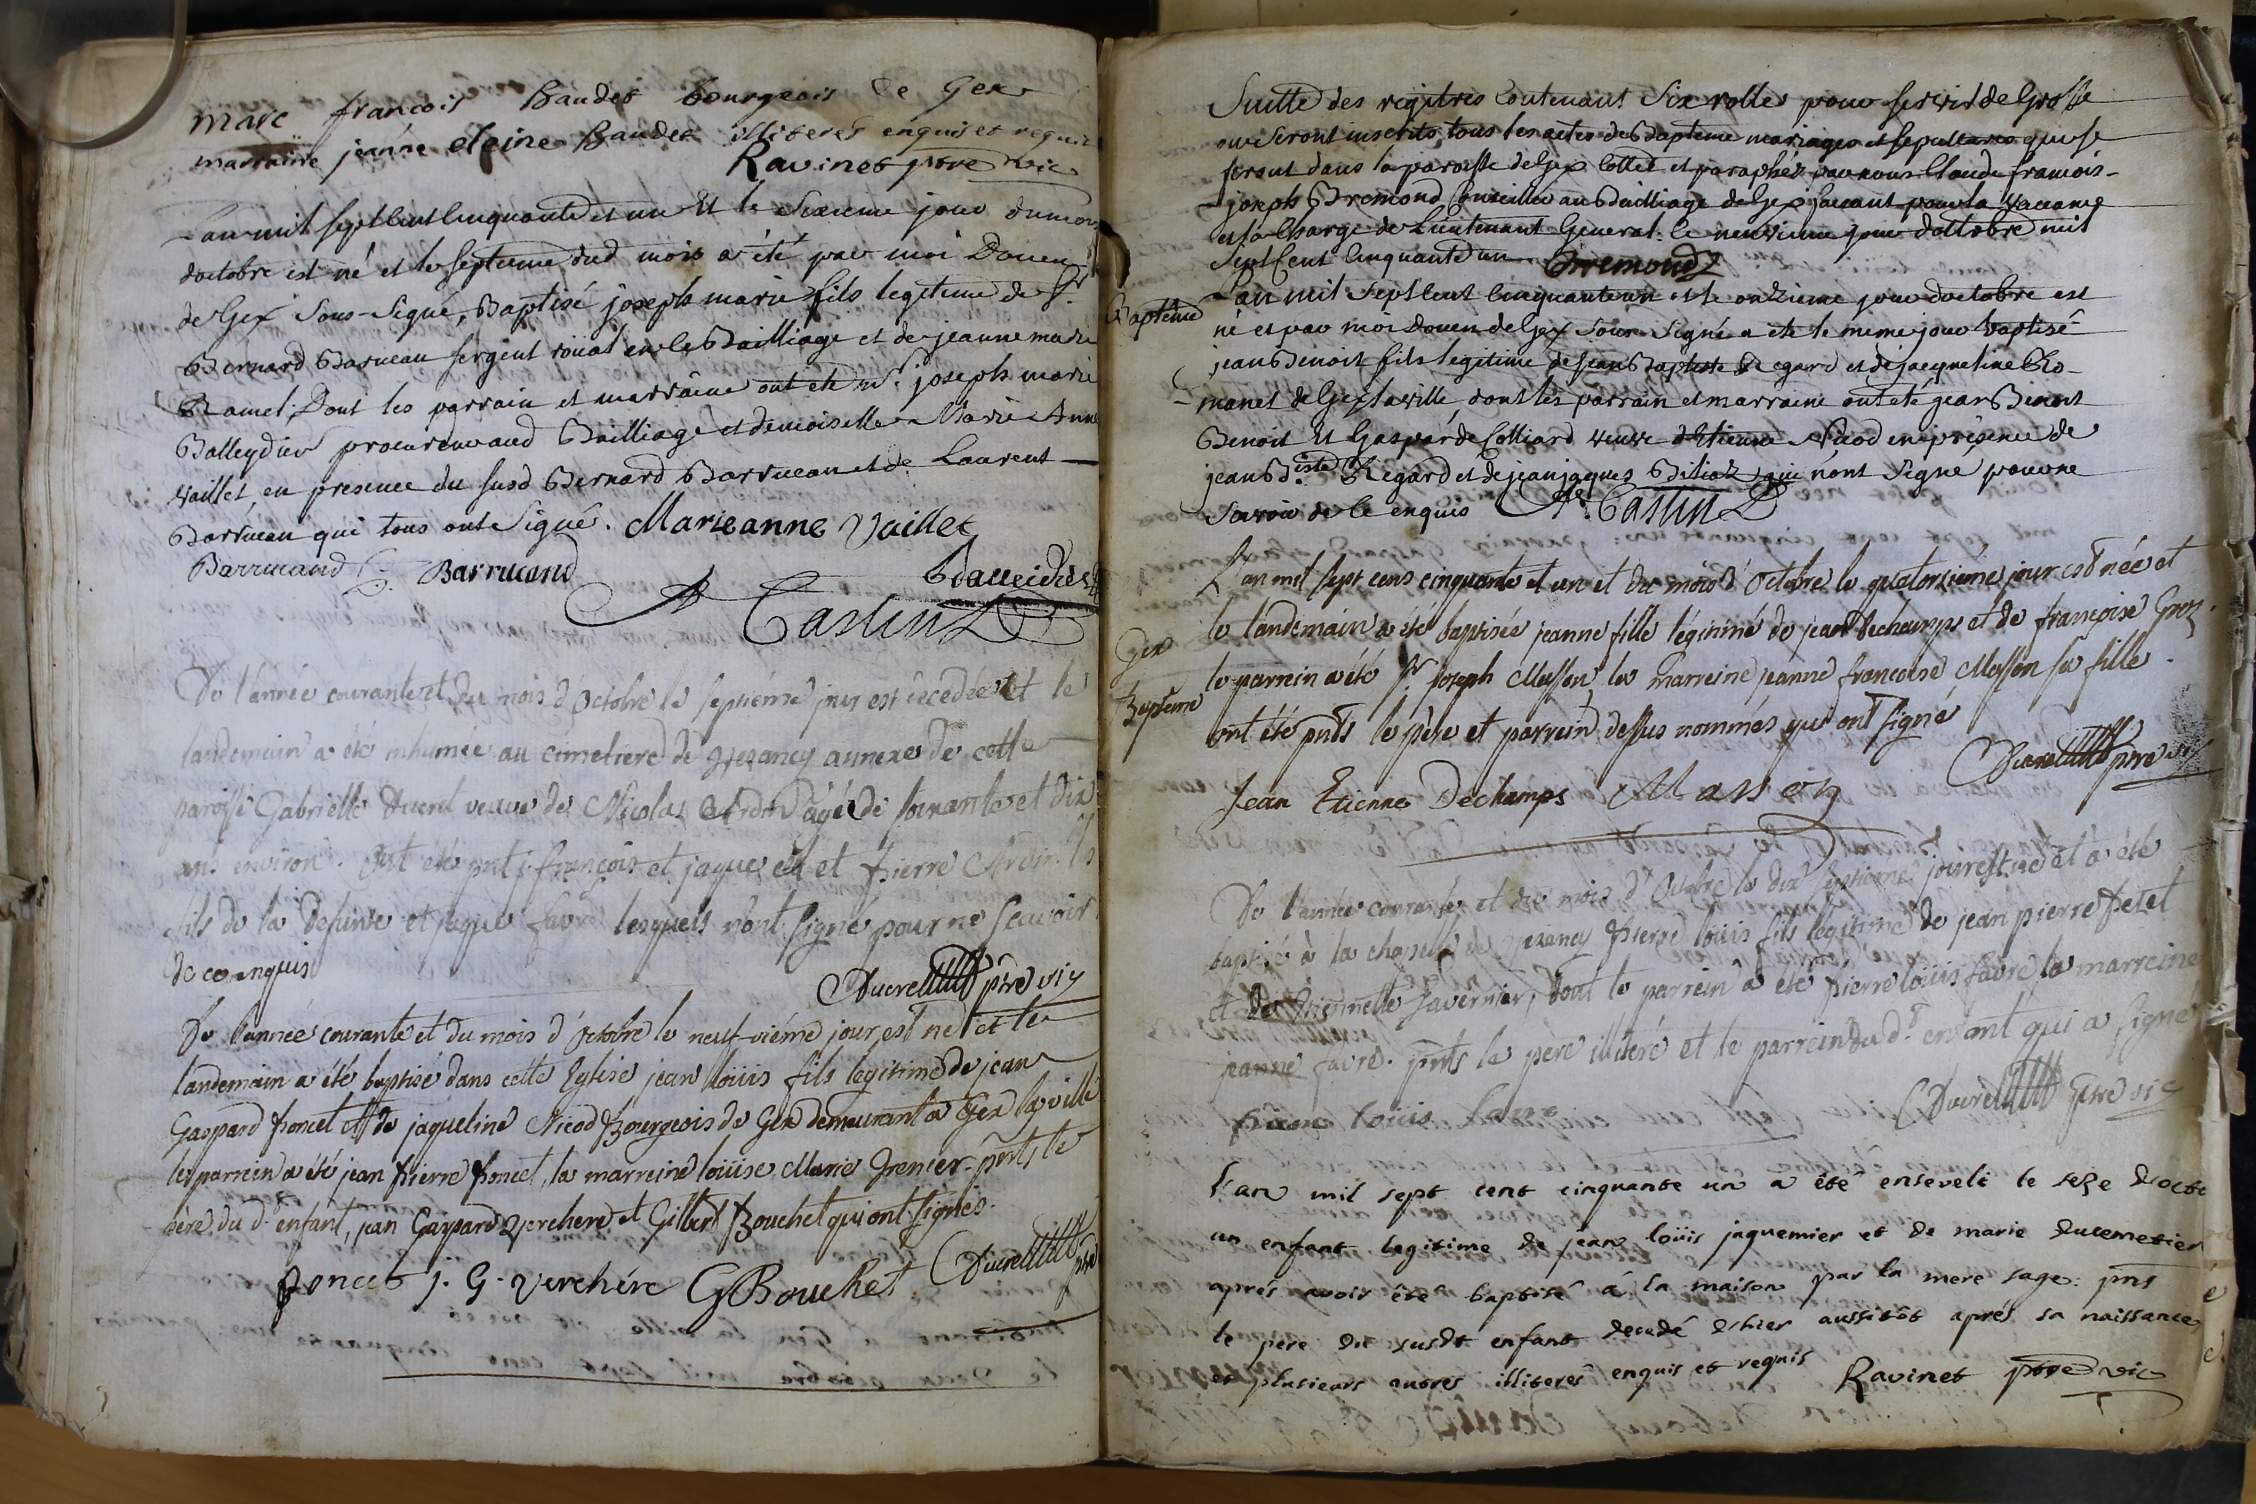 marc françois Baudet bourgeois de Gex
marraine jeanne eleine Baudet illiterés enquis et requis
Ravinet ptre vic
L'an mil sept cent cinquante et un et le sixieme jour du mois
doctobre est né et le septieme dud mois a été par moi Doüen
de Gex sous-signé, Baptisé joseph marie fils legitime de Sr.
Bernard Barucau sergent roïal en le Bailliage et de jeanne marie
Ramel, Dont les parrain et marraine ont eté mr. joseph marie
Balleydier procureur aud Bailliage et demoiselle Marie Anne
vaillet, en presence du susd Bernard Barrucau et de Laurent
Barrucau qui tous ont signé. Marieanne Vaillet
Barrucand Barrucand Balleidier
Castin
De l'année courante et du mois d'Octobre le septiéme jour est decedée et le
landemain a été inhumée au cimetiere de Vezancy annexe de cette
paroisse Gabrielle Ducret veuve de Nicolas agée de soixante et dix
ans environ. Ont eté pnts j. françois et jaque et pierre les
fils de la defunte et jaque favre lesquels n'ont signé pour ne sçavoir
de ce enquis
Ducret ptre vic
De l'année courante et du mois d'Octobre le neuf-viéme jour est né et le
landemain a été baptisé dans cette Eglise jean loüis fils legitime de jean
Gaspard poncet et de jaqueline Nicod Bourgeois de Gex demeurant a Gex la ville
le parrein a été jean pierre poncet, la marreine loüise Marie Grenier. pnts le
père du d. enfant, jean Gaspard Verchere et Gilbert Bouchet qui ont signés.
Ducret ptre
poncet j. G. Verchére G Bouchet
Suitte des registres Contenant Six rolles pour servir de Grosse
ou seront inscrits tous les actes de Bapteme mariages et sepultures qui se
feront dans la paroisse de Gex Cotté et paraphez par nous Claude françois-
joseph Bremond Conseiller au Bailliage de Gex faisant pour la vaccance
et la Charge de Lieutenant General. le neuvieme jour doctobre mil
sept cent cinquante un Bremond
Bapteme
L'an mil sept cent cinquante un et le onzieme jour doctobre est
né et par moi Doüen de Gex sous-signé a eté le meme jour baptisé
jean Benoit fils legitime de jean Baptiste Regard et de jacqueline Ro-
manet de Gex la ville, dont les parrain et marraine ont eté jean
Benoit et Gasparde Colliard veuve d'Etienne Nicod en presence de
jean Bte. Regard et de jean jaques Biliat qui n'ont signé pour ne
savoir de ce enquis Castin
Gex
Bapteme
L'an mil sept cens cinquante et un et du mois d'Octobre le quatorziéme jour est née et
le landemain a été baptisée jeanne fille légitime de jean Dechamps et de françoise Groz.
le parrein a été Sr. joseph Masson, la marreine jeanne françoise Masson sa fille.
ont été pnts le père et parrein dessus nommés qui ont signé
Ducret ptre vic
Jean Etienne Dechamps Masson
De l'année courante et du mois d'Octobre le dix septieme jour est né et a été
baptisé à la chapelle de Vezancy pierre loüis fils legitime de jean pierre petet
et de tavernier, dont le parrein a été pierre loüis favre la marreine
jeanne favre. pnts le pere illiteré et le parrein du d. enfant qui a signé
Ducret ptre vic
pierre loüis favre
L'an mil sept cent cinquante un a été enseveli le seze d'octo
un enfant legitime de jean loüis jaquemier et de marie ducemetier
aprés avoir été baptisé à la maison par la mere sage: pnts
le pere du susdt enfant decedé dehier aussitôt aprés sa naissance
et plusieurs autres illiterés enquis et requis Ravinet ptre vic